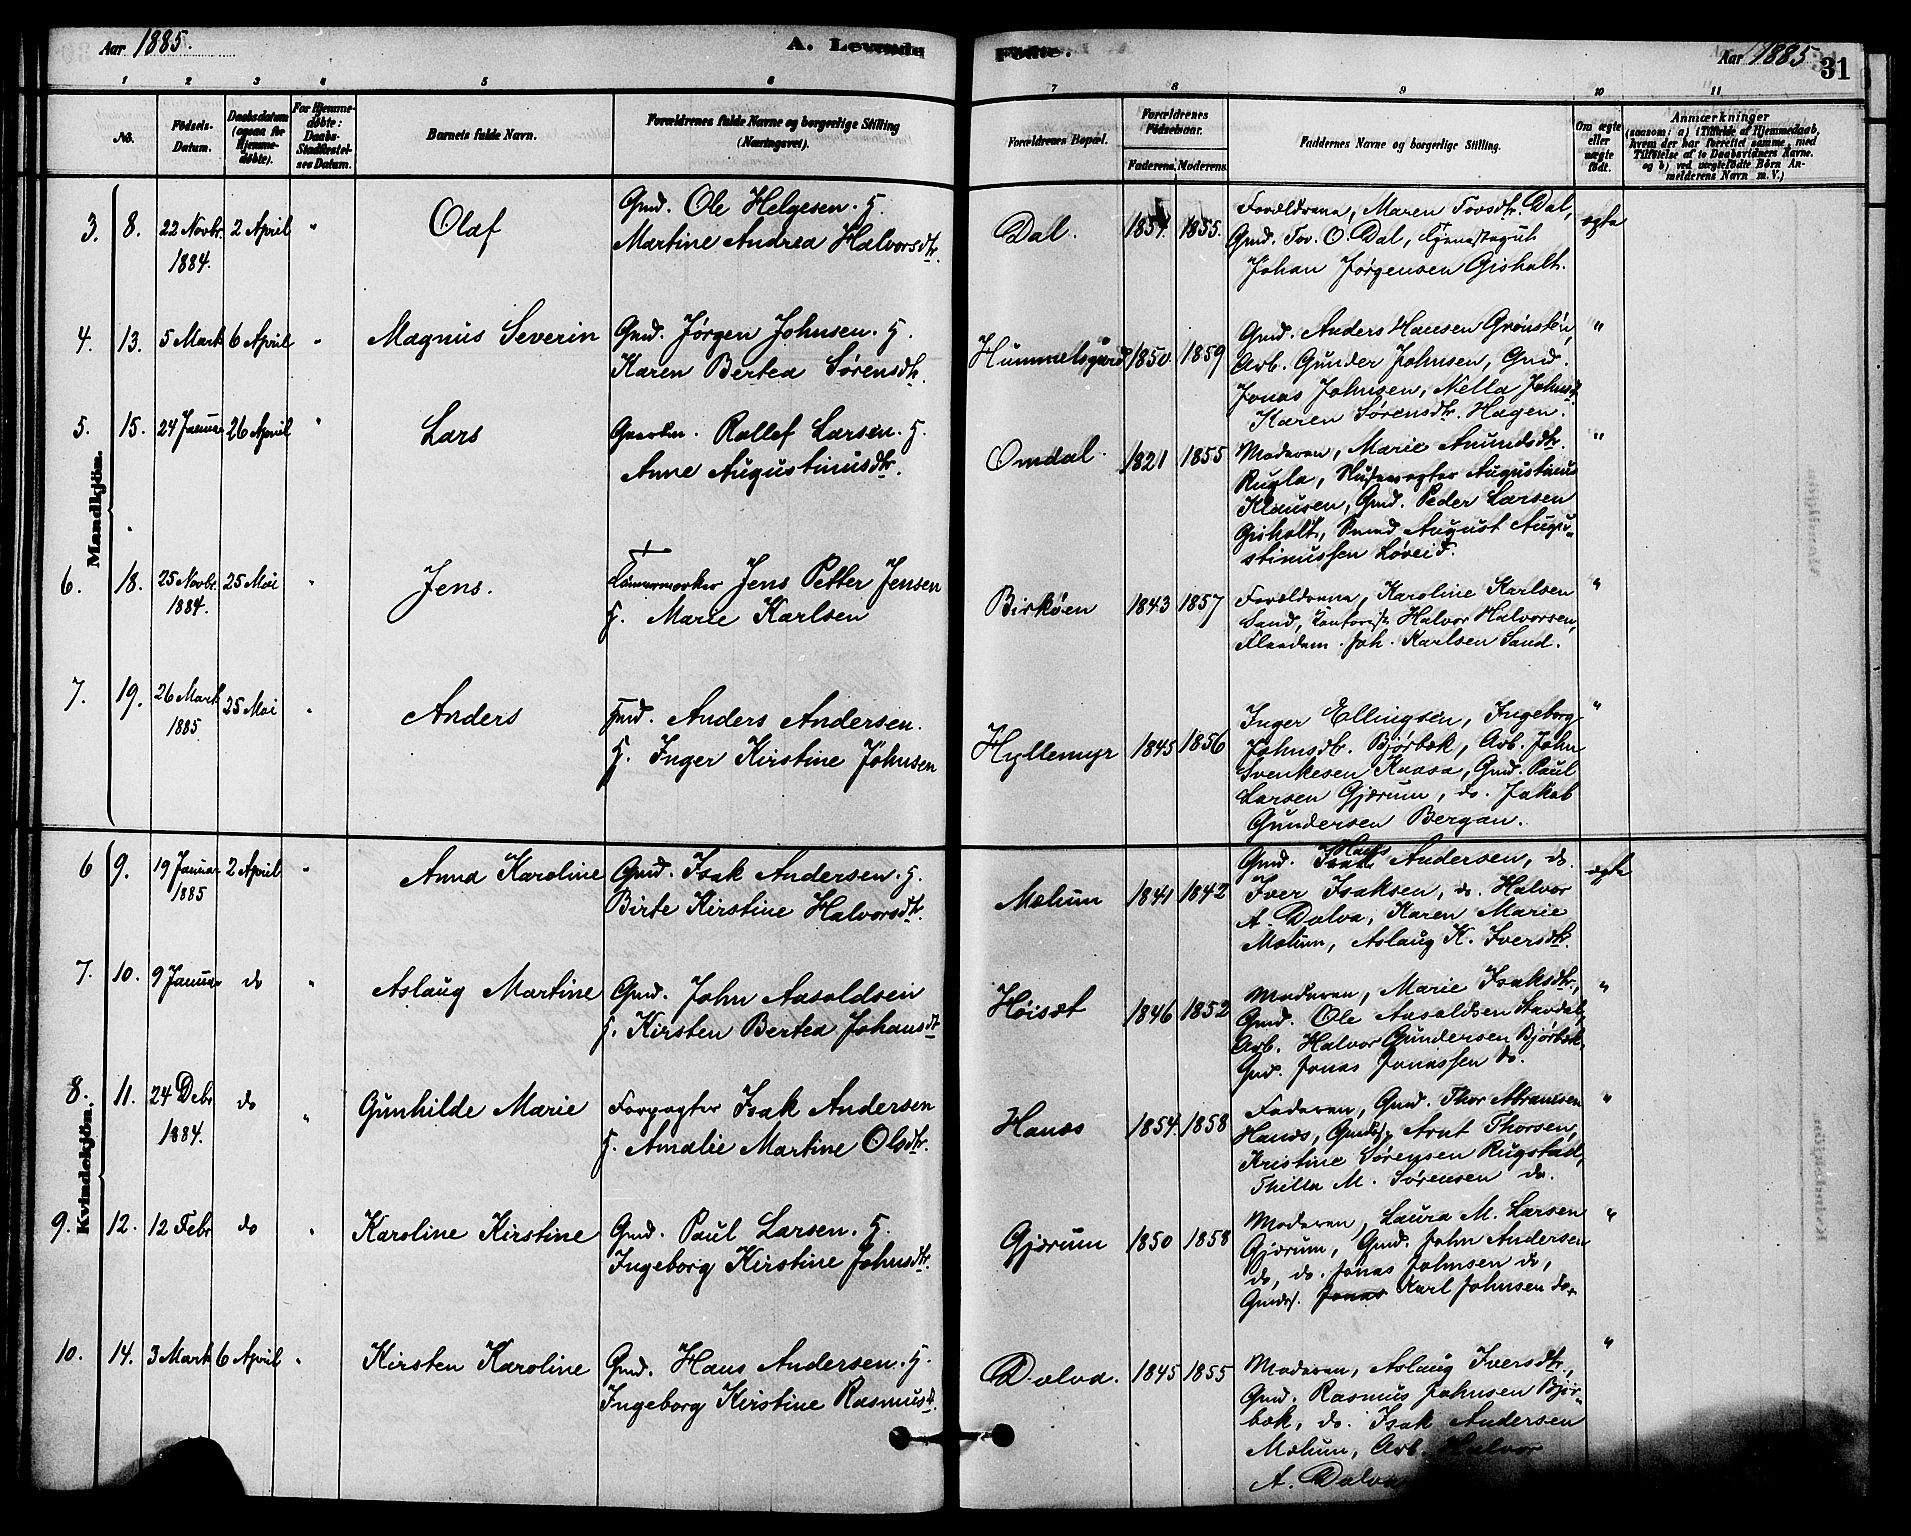 Aar 1885.
A. Levende
Fødte.
Aar 1885
31
1 2 3 4 5 6
7 8 9 10 11
No.
Fødsels-
Datum.
Daabsdatum
(ogsaa for
Hjemme-
døbte).
For Hjemme-
døbte:
Daabs-
Stadfæstel-
ses Datum.
Barnets fulde Navn.
Forældrenes fulde Navne og borgerlige Stilling
(Næringsvei).
Forældrenes Bopæl.
Forældrenes
Fødselsaar.
Faderens. Moderens.
Faddernes Navne og borgerlige Stilling.
Om ægte
eller
uægte
født.
Anmærkninger
(saasom: a) i Tilfælde af Hjemmedaab,
hvem der har forrettet samme, med
Tilføielse af to Daabsvidners Navne.
og b) ved uægtefødte Børn An-
melderens Navn m. V.)
Mandkjön.
3. 8. 22 Novbr. 1884. 2 April "
Olaf
Gmd. Ole Helgesen. H.
Martine Andrea Halvorsdtr.
Dal. 1854. 1855.
Forældrene, Maren Tovsdtr. Dal,
Gmd. Tov. O. Dal, Tjenestegut
Johan Jørgensen Gisholt.
ægte
4. 13. 5 Mark 6 April "
Magnus Severin
Gmd. Jørgen Johnsen. H.
Karen Bertea Sørensdtr.
Hummelsgaard 1850. 1859
Gmd. Anders Hansen Grønsten,
Arb. Gunder Johnsen, Gmd.
Jonas Johnsen, Nella Johnsd.
Karen Sørensdtr. Hagen.
"
5. 15. 24 Januar 26 April "
Lars
Gaardm. Rollef Larsen. H.
Anne Augustinusdtr.
Omdal. 1821 1855
Moderen, Marie Amundsdtr.
Rugla, Augustinus
Klausen, Gmd. Peder Larsen
Gisholt, Smed August Augu-
stinussen Løveid.
"
6. 18. 25 Novbr. 1884. 25 Mai "
Jens.
Tømmermerker Jens Petter Jensen
H. Marie Karlsen
Birkøen 1843 1857
Forældrene, Karoline Karlsen
Sand, Kontorist Halvor Halvorsen,
Flaadem. Joh. Karlsen Sand.
"
7. 19. 26 Mark 1885 25 Mai "
Anders
Gmd. Anders Andersen.
H. Inger Kirstine Johnsen
Hyllemyr 1845 1856
Inger Ellingsen, Ingeborg
Johnsdtr. Bjørbæk, Arb. John
Svenkesen Kaasa, Gmd. Paul
Larsen Gjærum, do. Jakob
Gundersen Bergan.
"
Kvindekjön.
6 9. 19 Januar 1885 2 April "
Anna Karoline
Gmd. Isak Andersen. H.
Birte Kirstine Halvorsdtr.
Mælum 1841 1842
Gmd. Isak Hans Andersen, do.
Iver Isaksen, do. Halvor
A. Dølva, Karen Marie
Mælum, Aslaug K. Iversdtr.
ægte
7. 10. 9 Januar do "
Aslaug Martine
Gmd. John Aasoldsen
H. Kirsten Bertea Johansdt
Høisæt 1846 1852
Moderen, Marie Isaksdtr.,
Gmd. Ole Aasoldsen Stavdal,
Arb. Halvor Gundersen Bjørbæk,
Gmd. Jonas Jonassen do.
"
8. 11. 24 Debr. 1884. do "
Gunhilde Marie
Forpagter Isak Andersen
H. Amalie Martine Olsdtr.
Hanæs 1854. 1858
Faderen, Gmd. Thor Abramsen
Hanæs, Gmds. Arnt Thorsen,
Kristine Sørensen Rugstad,
Thilla M. Sørensen do.
"
9. 12. 12 Febr do "
Karoline Kirstine
Gmd. Paul Larsen. H.
Ingeborg Kirstine Johnsdtr.
Gjærum 1850 1858
Moderen, Laura M. Larsen
Gjærum, Gmd. John Andersen
do, do. Jonas Johnsen do,
Gmds. Jonas Karl Johnsen do.
"
10. 14. 3 Mark 6 April "
Kirsten Karoline
Gmd. Hans Andersen. H.
Ingeborg Kirstine Rasmusd.
Dølva. 1845 1855
Moderen, Aslaug Iversdtr.,
Gmd. Rasmus Johnsen Bjør-
bæk, do. Isak Andersen
Mælum, Arb. Halvor
A. Dølva
"